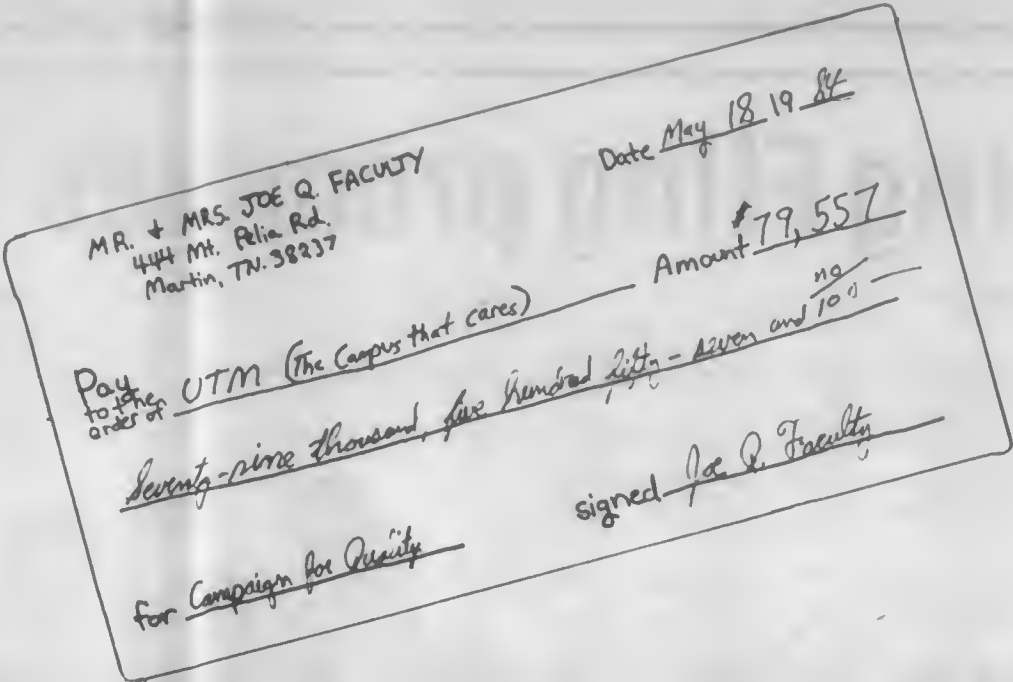 MR. & MRS. JOE Q. FACULTY
444 Mt. Pelia Rd.
Martin, TN. 38237
Date May 18 19 84
Amount $79,557
Pay to the order of UTM (The Campus that cares)
Seventy-nine thousand, five hundred fifty-seven and no/100
for Campaign for Quality
signed Joe Q. Faculty